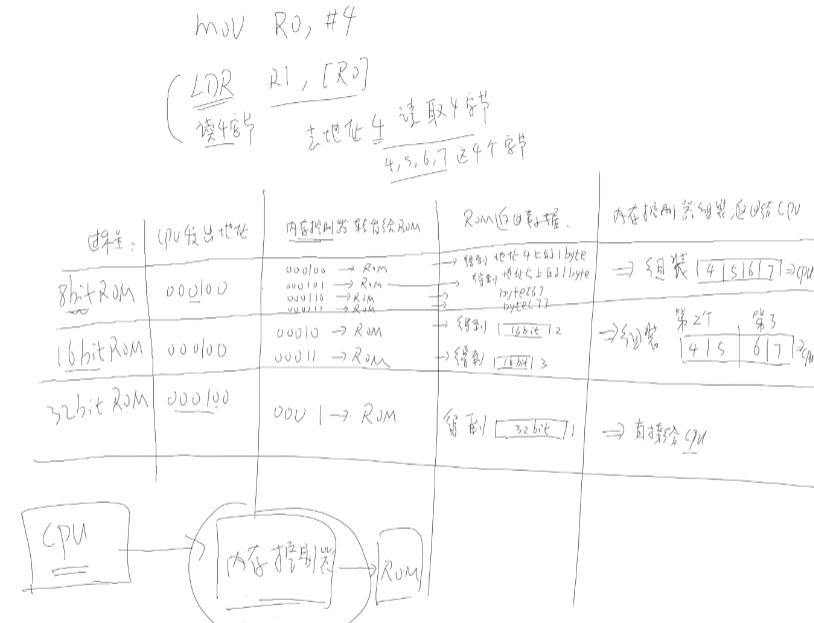 mov R0, #4
LDR R1, [R0]
读4字节 去地址4 读取4字节
4,5,6,7 这4个字节
过程: CPU发出地址 内存控制器转发给ROM ROM返回数据 内存控制器组装,返回给CPU
8bit ROM 000100
000100 → ROM → 得到 地址4上的1byte
000101 → ROM → 得到 地址5上的1byte
000110 → ROM → byte[6]
000111 → ROM → byte[7]
⇒ 组装 4 | 5 | 6 | 7 ⇒ CPU
16bit ROM 000100
00010 → ROM → 得到 16bit 2
00011 → ROM → 得到 16bit 3
⇒ 组装 第2个 第3
4 | 5 6 | 7 ⇒ CPU
32bit ROM 000100 0001 → ROM 得到 32bit 1 ⇒ 直接给 CPU
CPU
内存控制器
ROM